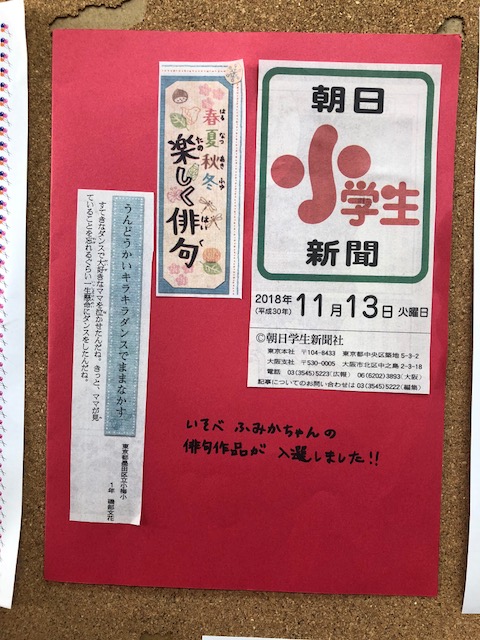 朝日
小学生
新聞
2018年
(平成30年)
11月13日 火曜日
©朝日学生新聞社
東京本社 〒104-8433 東京都中央区築地5-3-2
大阪支社 〒530-0005 大阪市北区中之島2-3-18
電話 03(3545)5223(広報) 06(6202)3893(大阪)
記事についてのお問い合わせは03(3545)5222(編集)
春夏秋冬
はる なつ あき ふゆ
楽しく俳句
たの はい く
うんどうかいキラキラダンスでままなかす
すてきなダンスで大好きなママを泣かせたんだね。きっと、ママが見
ていることを忘れるぐらい一生懸命にダンスをしたんだね。
東京都墨田区立小梅小
1年 磯部文花
いそべ ふみかちゃんの
俳句作品が 入選しました!!